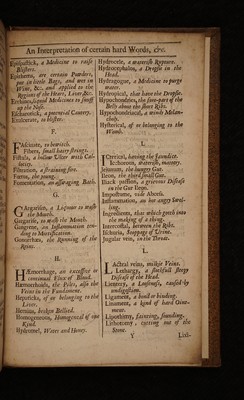 An Interpretation of certain hard Words, &c.
Epispastick, a Medicine to raise
Blisters.
Epithems, are certain Powders,
put in little Bags, and wet in
Wine, &c. and applied to the
Regions of the Heart, Liver &c.
Errhines, liquid Medicines to snuff
up the Nose.
Escharotick, a potential Cautery.
Exulcerate, to blister.
F.
Fascinate, to bewitch.
Fibres, small hairy strings.
Fistula, a hollow Ulcer with Callosity.
Filtration, a straining fine.
Fætus, the young.
Fomentation, an asswaging Bath.
G.
Gargarism, a Liquour to wash
the Mouth.
Gargarise, to wash the Mouth.
Gangrene, an Inflammation tending
to Mortification.
Gonorrhæa, the Running of the
Reins.
H.
Hæmorrhage, an excessive or
continual Flux of Blood.
Hæmorrhoids, the Piles, also the
Veins in the Fundament.
Hepaticks, of or belonging to the
Liver.
Hernias, broken Bellied.
Homogeneous, Homogeneal of one
Kind.
Hydromel, Water and Honey.
Hydrocele, a waterish Rupture.
Hydrocephalus, a Dropsy in the
Head.
Hydragogue, a Medicine to purge
water.
Hydropical, that have the Dropsie.
Hypochondries, the fore-part of the
Belly about the short Ribs.
Hypochondriacal, a windy Melancholy.
Hysterical, of or belonging to the
Womb.
I.
Icterical, having the Jaundice.
Ichorous, waterish, mattery.
Jejunum, the hungry Gut.
Ileon, the third small Gut.
Iliack passion, a grievous Disease
in the Gut Ileon.
Imposthume, vide Abscess.
Inflammation, an hot angry Swelling.
Ingredients, that which goeth into
the making of a thing.
Intercostal, between the Ribs.
Ischuria, stoppage of Urine.
Jugular vein, in the Throat.
L.
Lacteal veins, milkie Veins.
Lethargy, a slothful sleepy
Disease of the Head.
Lientery, a Looseness, caused by
undigestion.
Ligament, a band or binding.
Liniment, a kind of hard Ointment.
Lipothymy, fainting, swooning.
Lithotomy, cutting out of the
Stone.
Y